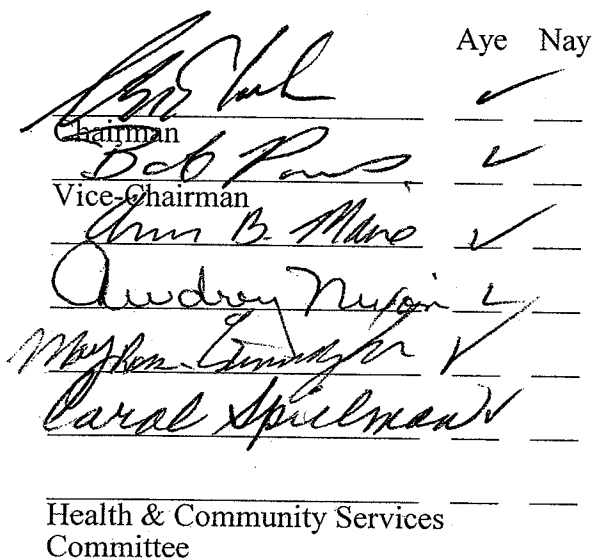 Aye Nay
✓
Chairman
Bob Powers ✓
Vice-Chairman
Ann B. Maine ✓
Audrey Nixon ✓
Mary Ross Cunningham ✓
Carol Spielman ✓
Health & Community Services
Committee